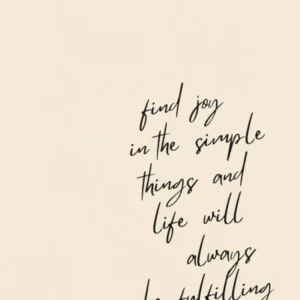 find joy
in the simple
things and
life will
always
be fulfilling